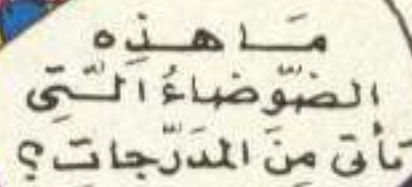 مَا هذِه
الضّوضاءُ الّتِى
تأتى مِنَ المدَرّجاتِ؟